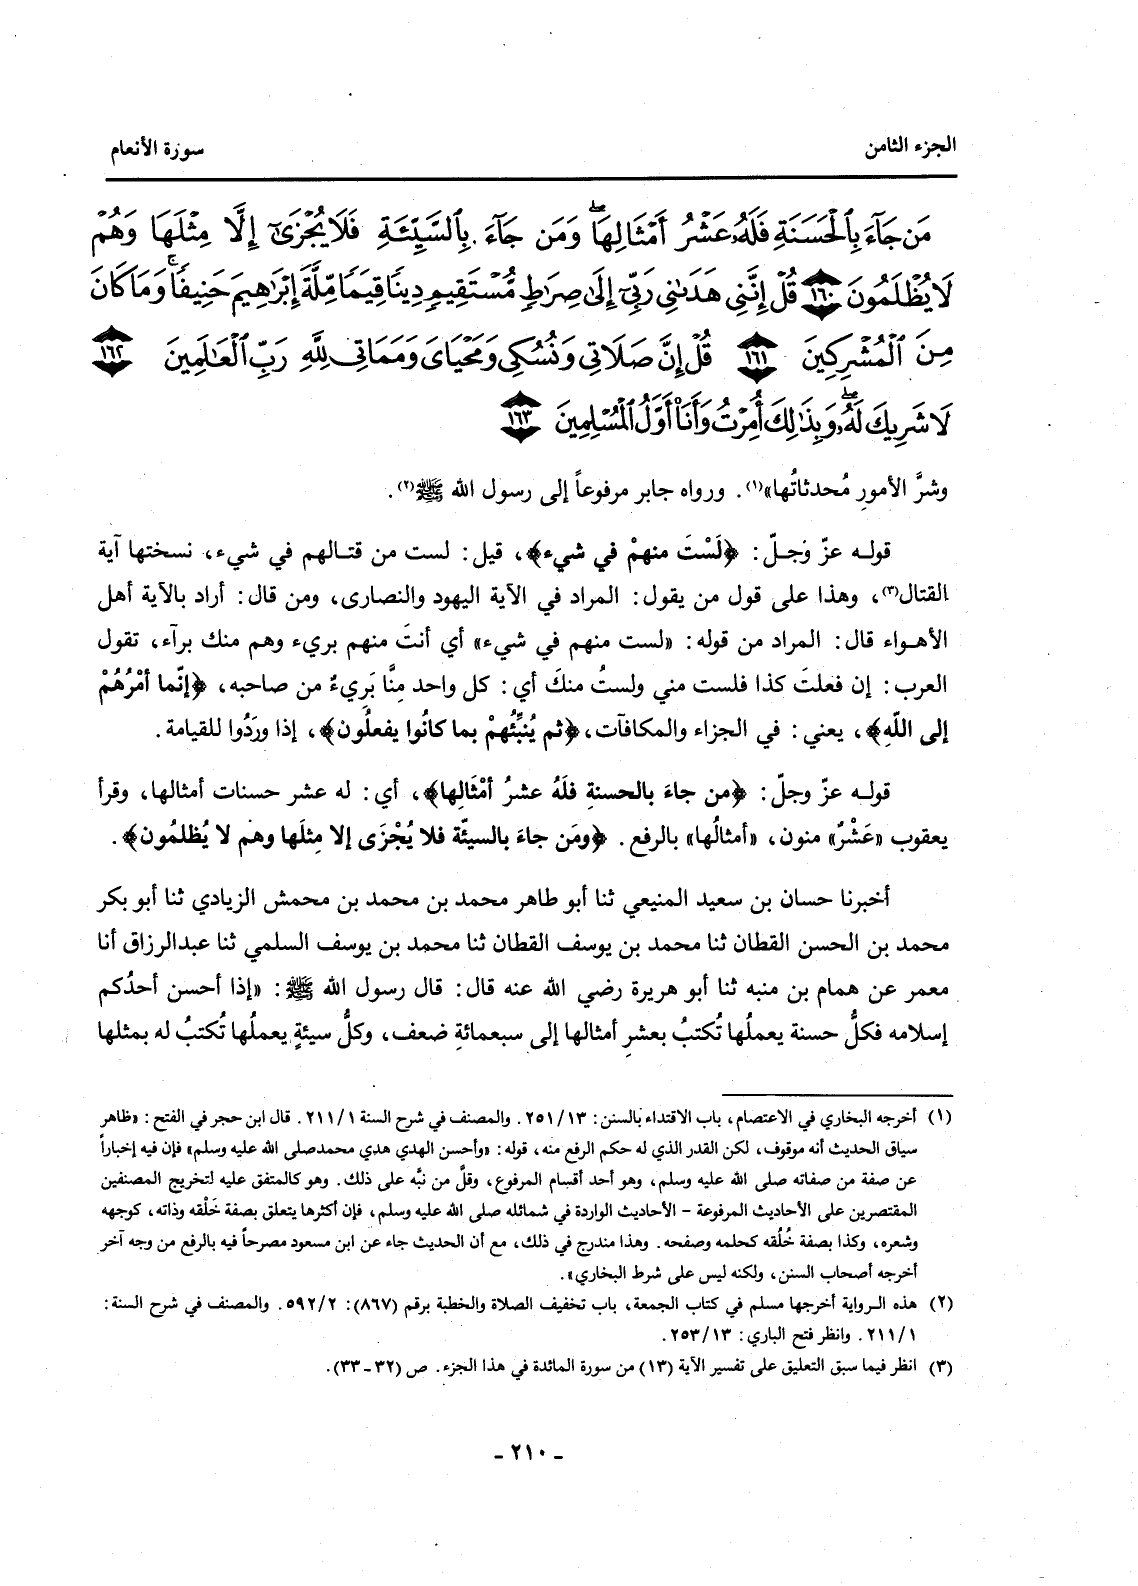 الجزء الثامن
سورة الأنعام
مَن جَآءَ بِٱلْحَسَنَةِ فَلَهُۥ عَشْرُ أَمْثَالِهَا ۖ وَمَن جَآءَ بِٱلسَّيِّئَةِ فَلَا يُجْزَىٰٓ إِلَّا مِثْلَهَا وَهُمْ
لَا يُظْلَمُونَ ١٦٠ قُلْ إِنَّنِى هَدَىٰنِى رَبِّىٓ إِلَىٰ صِرَٰطٍ مُّسْتَقِيمٍ دِينًا قِيَمًا مِّلَّةَ إِبْرَٰهِيمَ حَنِيفًا ۚ وَمَا كَانَ
مِنَ ٱلْمُشْرِكِينَ ١٦١ قُلْ إِنَّ صَلَاتِى وَنُسُكِى وَمَحْيَاىَ وَمَمَاتِى لِلَّهِ رَبِّ ٱلْعَٰلَمِينَ ١٦٢
لَا شَرِيكَ لَهُۥ ۖ وَبِذَٰلِكَ أُمِرْتُ وَأَنَا۠ أَوَّلُ ٱلْمُسْلِمِينَ ١٦٣
وشرَّ الأمورِ مُحدثاتُها»(١). ورواه جابر مرفوعاً إلى رسول الله ﷺ(٢).
قولـه عزّ وَجـلّ: ﴿لَسْتَ منهمْ في شيء﴾، قيل: لست من قتـالهم في شيء، نسختها آية
القتال(٣)، وهذا على قول من يقول: المراد في الآية اليهود والنصارى، ومن قال: أراد بالآية أهل
الأهـواء قال: المراد من قوله: «لست منهم في شيء» أي أنتَ منهم بريء وهم منك برآء، تقول
العرب: إن فعلتَ كذا فلست مني ولستُ منكَ أي: كل واحد مِنَّا بَرِيءٌ من صاحبه، ﴿إنّما أمْرُهُمْ
إلى اللّهِ﴾، يعني: في الجزاء والمكافآت، ﴿ثم يُنبِّئُهمْ بما كانُوا يفعلُون﴾، إذا ورَدُوا للقيامة.
قولـه عزّ وجلّ: ﴿من جاءَ بالحسنةِ فلَهُ عشرُ أمْثَالِها﴾، أي: له عشر حسنات أمثالها، وقرأ
يعقوب «عَشْرٌ» منون، «أمثالُها» بالرفع. ﴿ومَن جاءَ بالسيئّة فلا يُجْزَى إلا مِثلَها وهم لا يُظلمُون﴾.
أخبرنا حسان بن سعيد المنيعي ثنا أبو طاهر محمد بن محمد بن محمش الزيادي ثنا أبو بكر
محمد بن الحسن القطان ثنا محمد بن يوسف القطان ثنا محمد بن يوسف السلمي ثنا عبدالرزاق أنا
معمر عن همام بن منبه ثنا أبو هريرة رضي الله عنه قال: قال رسول الله ﷺ: «إذا أحسن أحدُكم
إسلامه فكلُّ حسنة يعملُها تُكتبُ بعشرِ أمثالها إلى سبعمائةِ ضعف، وكلُّ سيئةٍ يعملُها تُكتبُ له بمثلها
(١) أخرجه البخاري في الاعتصام، باب الاقتداء بالسنن: ٢٥١/١٣. والمصنف في شرح السنة ٢١١/١. قال ابن حجر في الفتح: «ظاهر
سياق الحديث أنه موقوف، لكن القدر الذي له حكم الرفع منه، قوله: «وأحسن الهدي هدي محمدصلى الله عليه وسلم» فإن فيه إخباراً
عن صفة من صفاته صلى الله عليه وسلم، وهو أحد أقسام المرفوع، وقلَّ من نبَّه على ذلك. وهو كالمتفق عليه لتخريج المصنفين
المقتصرين على الأحاديث المرفوعة - الأحاديث الواردة في شمائله صلى الله عليه وسلم، فإن أكثرها يتعلق بصفة خَلْقه وذاته، كوجهه
وشعره، وكذا بصفة خُلُقه كحلمه وصفحه. وهذا مندرج في ذلك، مع أن الحديث جاء عن ابن مسعود مصرحاً فيه بالرفع من وجه آخر
أخرجه أصحاب السنن، ولكنه ليس على شرط البخاري».
(٢) هذه الـرواية أخرجها مسلم في كتاب الجمعة، باب تخفيف الصلاة والخطبة برقم (٨٦٧): ٥٩٢/٢. والمصنف في شرح السنة:
٢١١/١. وانظر فتح الباري: ٢٥٣/١٣.
(٣) انظر فيما سبق التعليق على تفسير الآية (١٣) من سورة المائدة في هذا الجزء. ص (٣٢ - ٣٣).
- ٢١٠ -